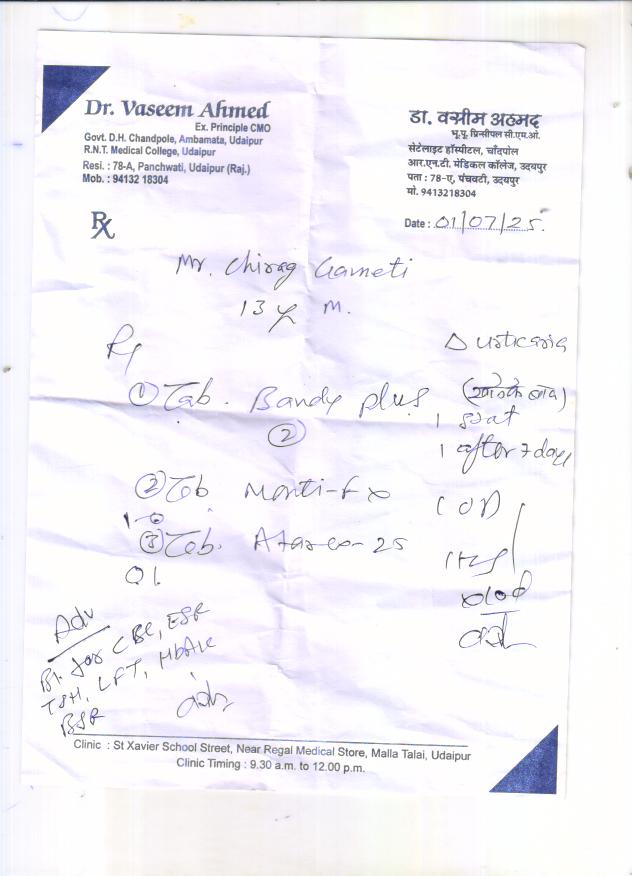 Dr. Vaseem Ahmed
Ex. Principle CMO
Govt. D.H. Chandpole, Ambamata, Udaipur
R.N.T. Medical College, Udaipur
Resi. : 78-A, Panchwati, Udaipur (Raj.)
Mob. : 94132 18304
डा. वसीम अहमद
भू.पू. प्रिन्सीपल सी.एम.ओ.
सेटेलाइट हॉस्पीटल, चाँदपोल
आर.एन.टी. मेडिकल कॉलेज, उदयपुर
पता : 78-ए, पंचवटी, उदयपुर
मो. 9413218304
Rx
Date : 01/07/25.
Mr. Chirag Gameti
13 y M.
Δ Urticaria
Rx
① Tab. Bandy plus
②
1
1 after 7 days
② Tab Monti-Fx
1 OD
1-0
③ Tab. Atarax-25
1 HS
01.
Adv
Bl. for CBC, ESR
TSH, LFT, HbA1c
BSR
Clinic : St Xavier School Street, Near Regal Medical Store, Malla Talai, Udaipur
Clinic Timing : 9.30 a.m. to 12.00 p.m.